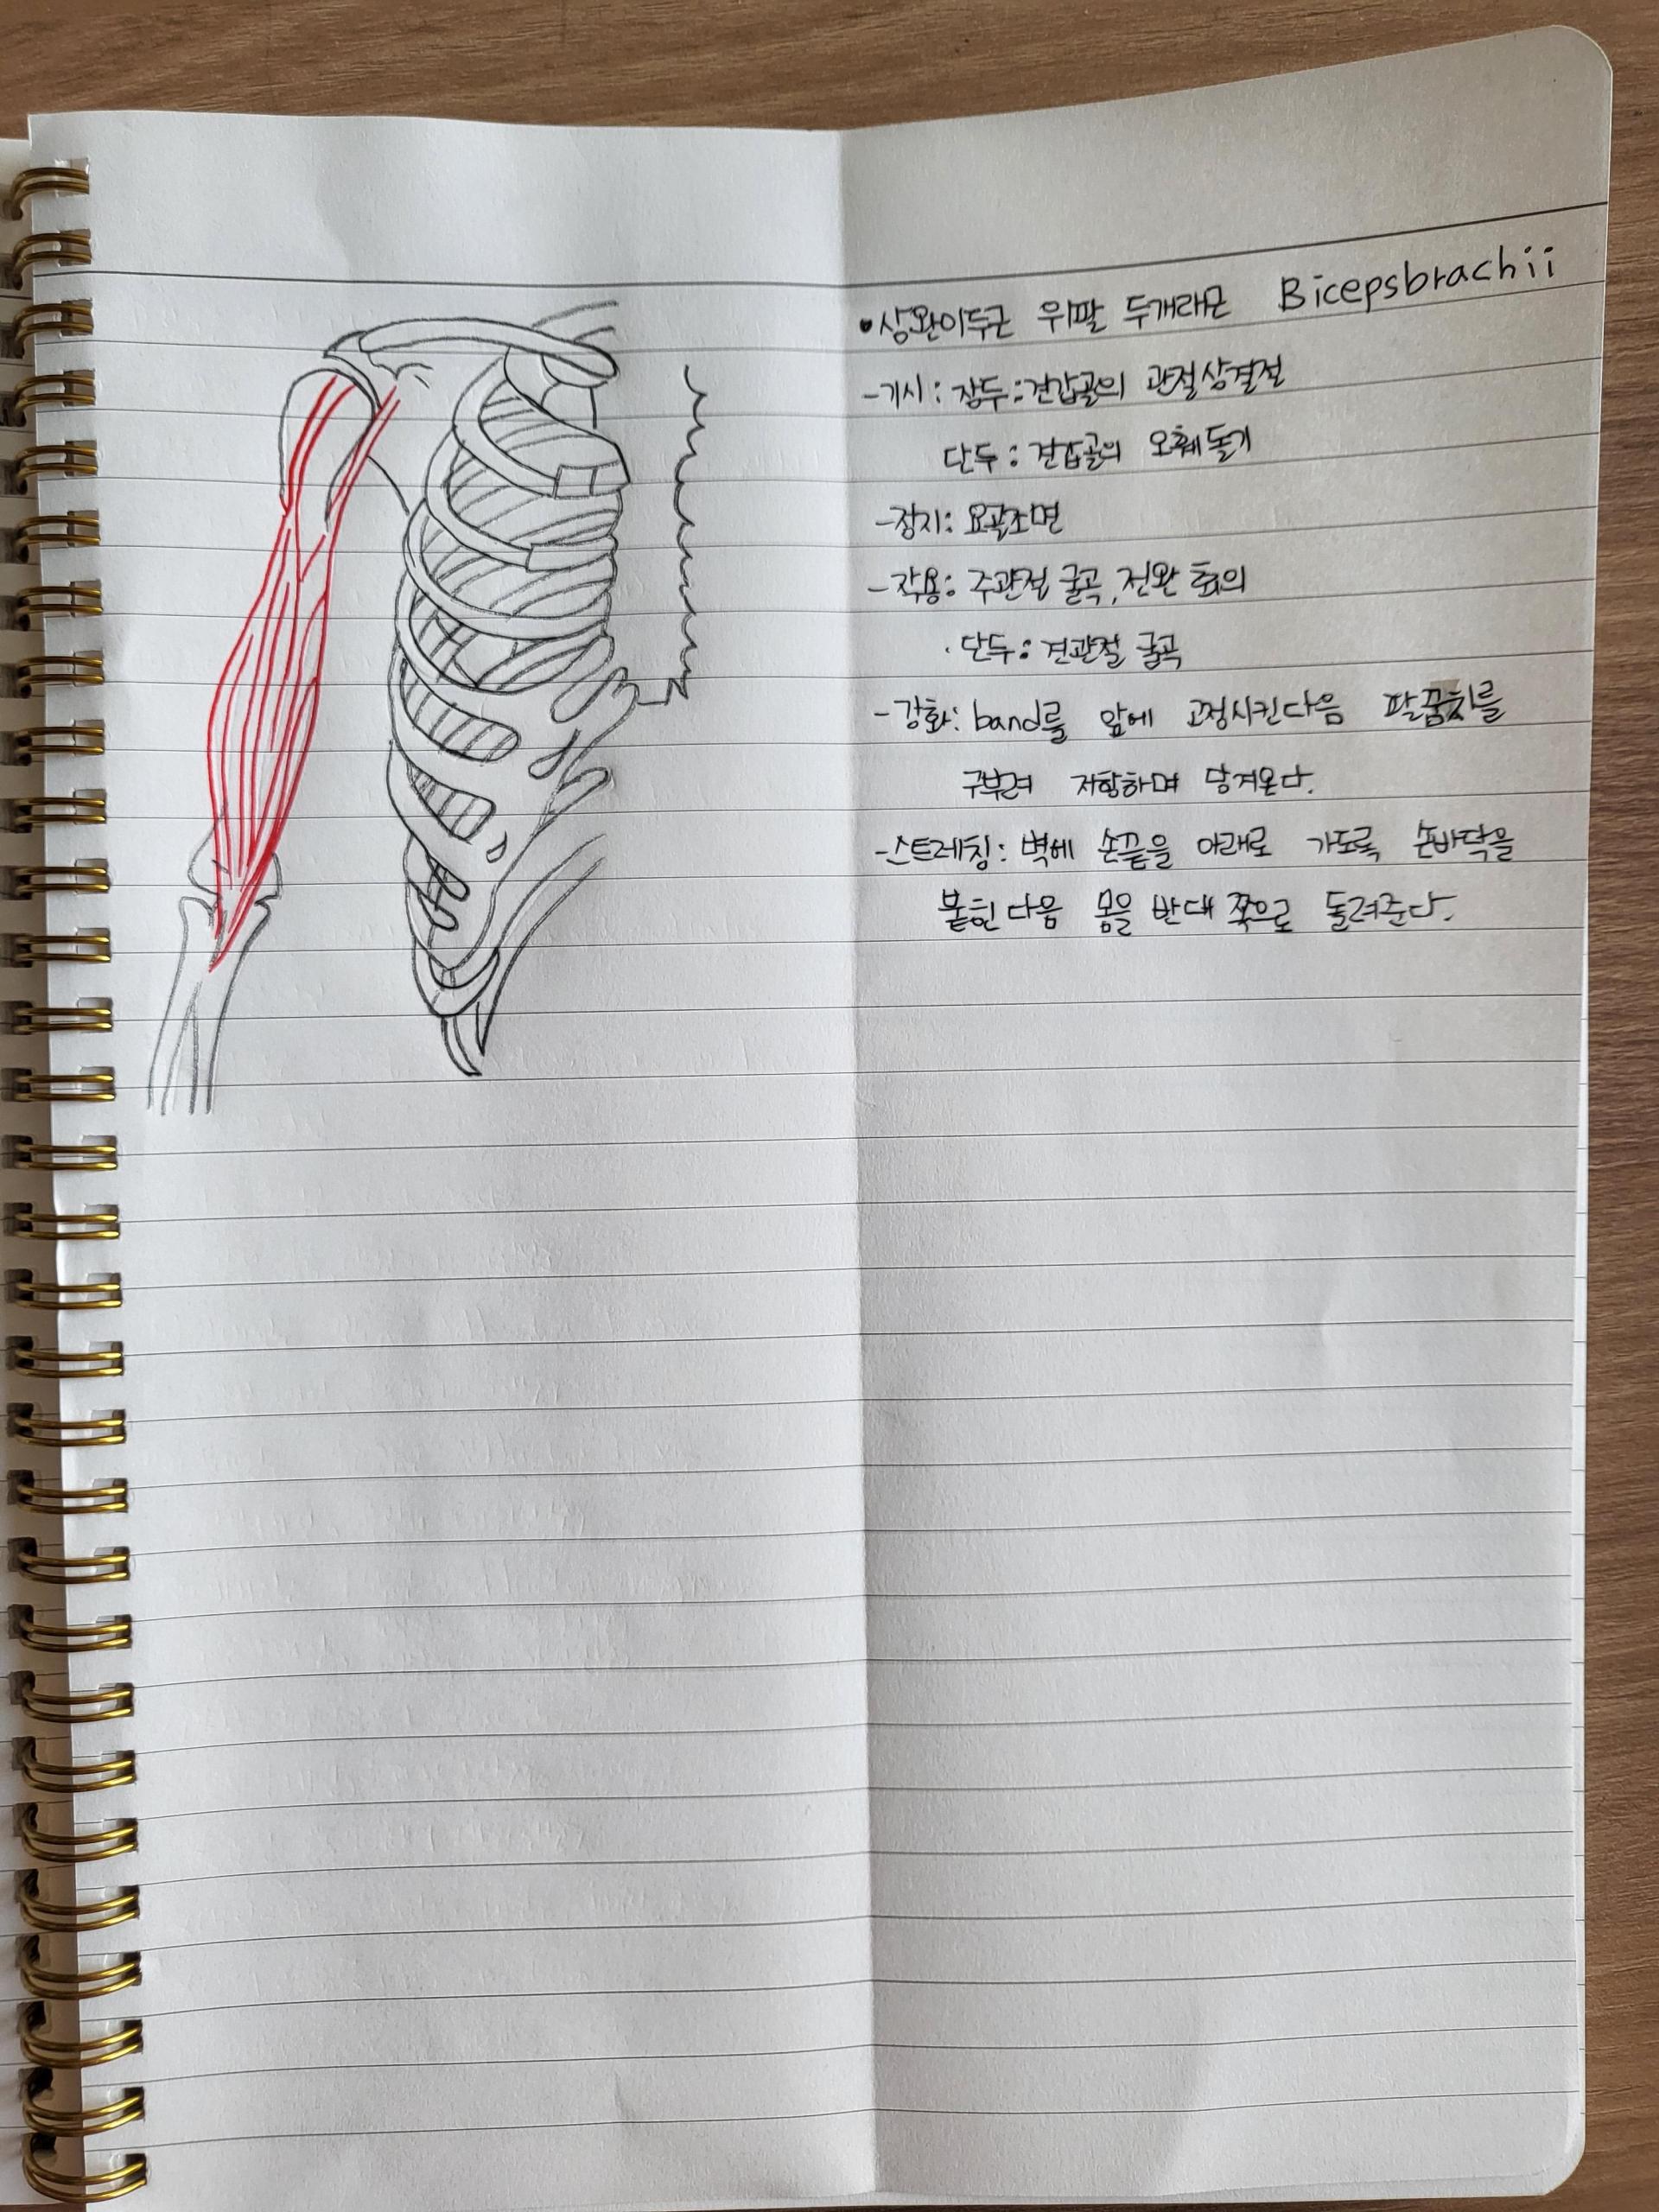 •상완이두근 위팔 두개래근 Bicepsbrachii
-기시: 장두:견갑골의 관절상결절
단두: 견갑골의 오훼돌기
-정지: 요골조면
-작용: 주관절 굴곡, 전완 회의
·단두: 견관절 굴곡
-강화: band를 앞에 고정시킨다음 팔꿈치를
구부려 저항하며 당겨온다.
-스트레칭: 벽에 손끝을 아래로 가도록 손바닥을
붙힌다음 몸을 반대쪽으로 돌려준다.